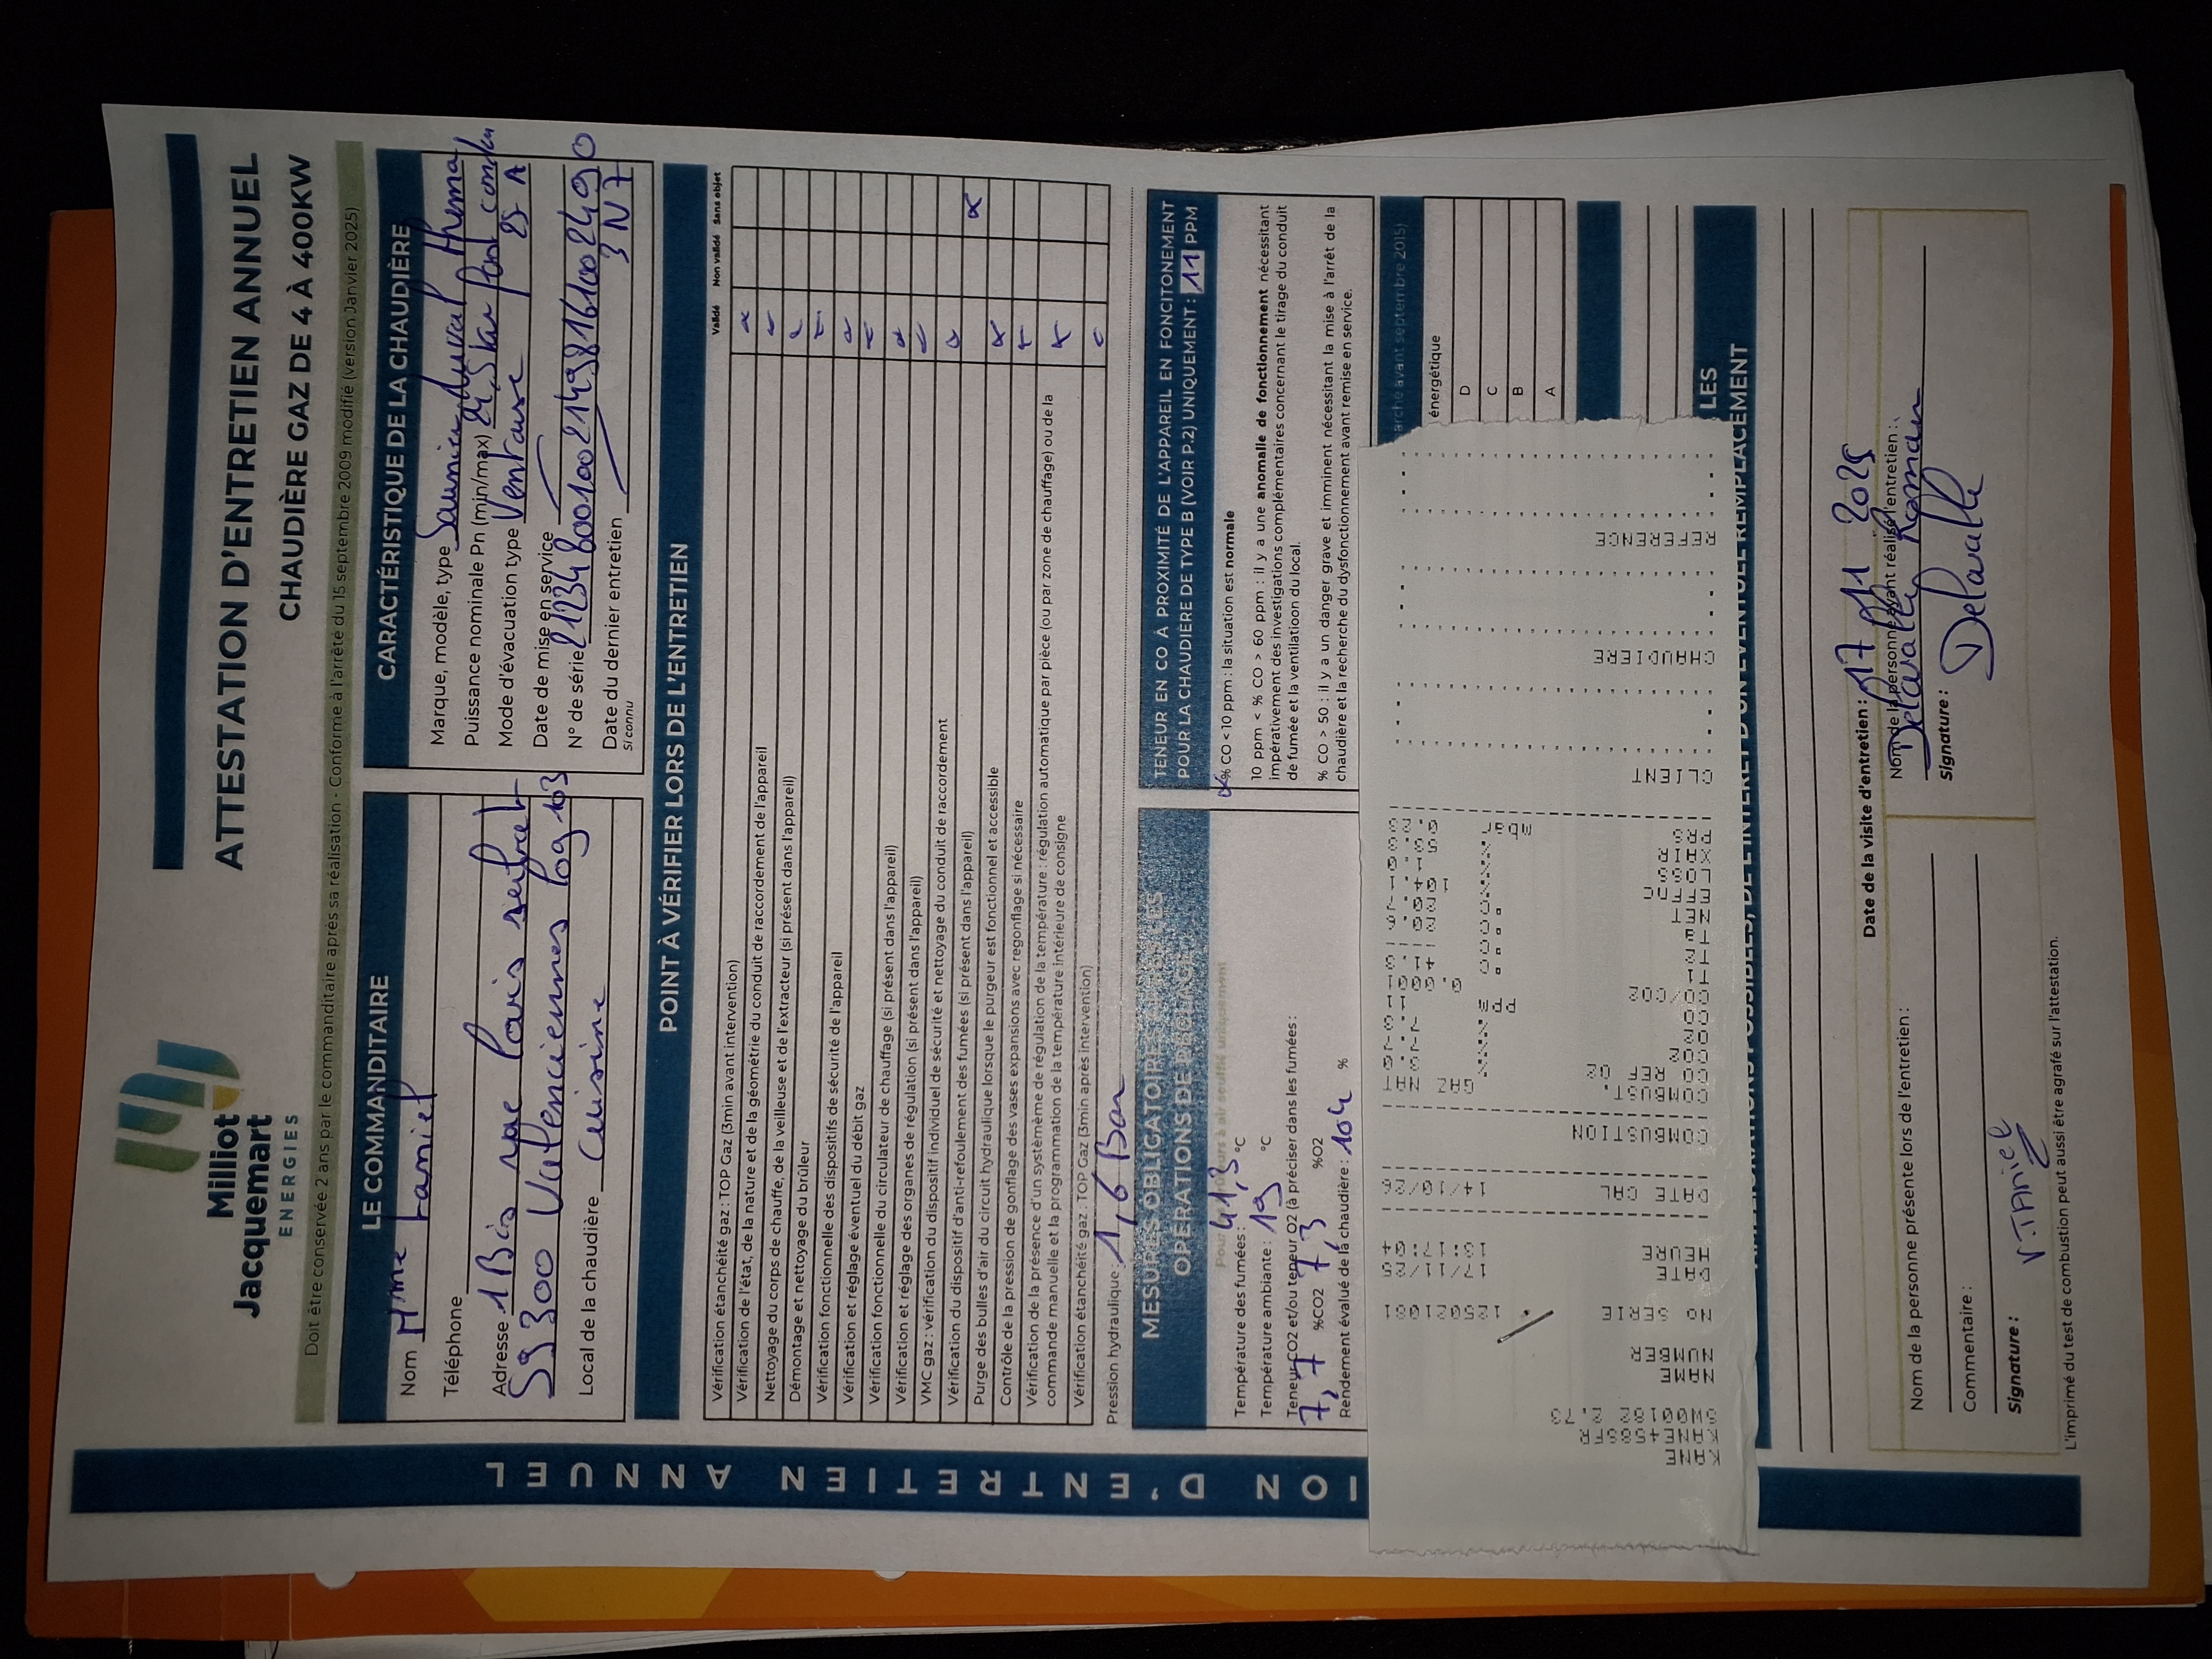 Milliot
Jacquemart
ENERGIES
ATTESTATION D'ENTRETIEN ANNUEL
CHAUDIÈRE GAZ DE 4 À 400KW
Doit être conservée 2 ans par le commanditaire après sa réalisation - Conforme à l'arrêté du 15 septembre 2009 modifié (version Janvier 2025)
ION D'ENTRETIEN ANNUEL
LE COMMANDITAIRE
Nom Mme
Téléphone
Adresse 1 Bis rue Louis
59300 Valenciennes log 103
Local de la chaudière Cuisine
CARACTÉRISTIQUE DE LA CHAUDIÈRE
Marque, modèle, type Saunier duval thema
Puissance nominale Pn (min/max) 25 A
Mode d'évacuation type Ventouse
Date de mise en service
N° de série 2123480010021498161002490
3 N7
Date du dernier entretien
Si connu
POINT À VÉRIFIER LORS DE L'ENTRETIEN
Validé Non validé Sans objet
Vérification étanchéité gaz : TOP Gaz (3min avant intervention)
Vérification de l'état, de la nature et de la géométrie du conduit de raccordement de l'appareil
Nettoyage du corps de chauffe, de la veilleuse et de l'extracteur (si présent dans l'appareil)
Démontage et nettoyage du brûleur
Vérification fonctionnelle des dispositifs de sécurité de l'appareil
Vérification et réglage éventuel du débit gaz
Vérification fonctionnelle du circulateur de chauffage (si présent dans l'appareil)
Vérification et réglage des organes de régulation (si présent dans l'appareil)
VMC gaz : vérification du dispositif individuel de sécurité et nettoyage du conduit de raccordement
Vérification du dispositif d'anti-refoulement des fumées (si présent dans l'appareil)
Purge des bulles d'air du circuit hydraulique lorsque le purgeur est fonctionnel et accessible
Contrôle de la pression de gonflage des vases expansions avec regonflage si nécessaire
Vérification de la présence d'un systèmème de régulation de la température : régulation automatique par pièce (ou par zone de chauffage) ou de la
commande manuelle et la programmation de la température intérieure de consigne
Vérification étanchéité gaz : TOP Gaz (3min après intervention)
Pression hydraulique : 1,6 Bar
MESURES OBLIGATOIRES
OPÉRATIONS DE
Température des fumées : 41,3 °C
Température ambiante : 19 °C
Teneur CO2 et/ou teneur O2 (à préciser dans les fumées :
7,7 %CO2 7,3 %O2
Rendement évalué de la chaudière : 104 %
TENEUR EN CO À PROXIMITÉ DE L'APPAREIL EN FONCITONEMENT
POUR LA CHAUDIÈRE DE TYPE B (VOIR P.2) UNIQUEMENT : 11 PPM
% CO < 10 ppm : la situation est normale
10 ppm < % CO > 60 ppm : il y a une anomalie de fonctionnement nécessitant
impérativement des investigations complémentaires concernant le tirage du conduit
de fumée et la ventilation du local.
% CO > 50 : il y a un danger grave et imminent nécessitant la mise à l'arrêt de la
chaudière et la recherche du dysfonctionnement avant remise en service.
arché avant septembre 2015)
énergétique
D
C
B
A
KANE
KANE458STR
NAME
NUMBER
NO SERIE
DATE 17/11/25
HEURE
DATE CAL 14/10/26
COMBUSTION
COMBUST. GAZ NAT
CO REF O2
CO2
O2
CO ppm 11
CO/CO2 0.0001
T1 41.3
NET
EFFNC 104.1
LOSS
XAIR
PRS mbar
CLIENT
CHAUDIERE
REFERENCE
LES
REMPLACEMENT
Date de la visite d'entretien : 17 11 2025
Nom de la personne ayant réalisé l'entretien :
Delavalle Romain
Signature :
Delavalle
Nom de la personne présente lors de l'entretien :
Commentaire :
Signature :
L'imprimé du test de combustion peut aussi être agrafé sur l'attestation.